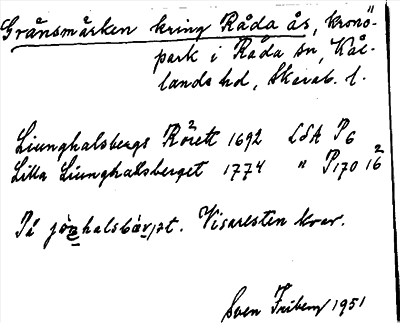 Gränsmärken kring Råda ås, kronö-
park i Råda sn, Kål-
lands hd, Skarab. l.
Liunghalsbergs Rörett 1692 LSA P6
Lilla Liunghalsberget 1774 " P170 16²
På jöṇhalsbärjet. Visaresten kvar.
Sven Friberg 1951